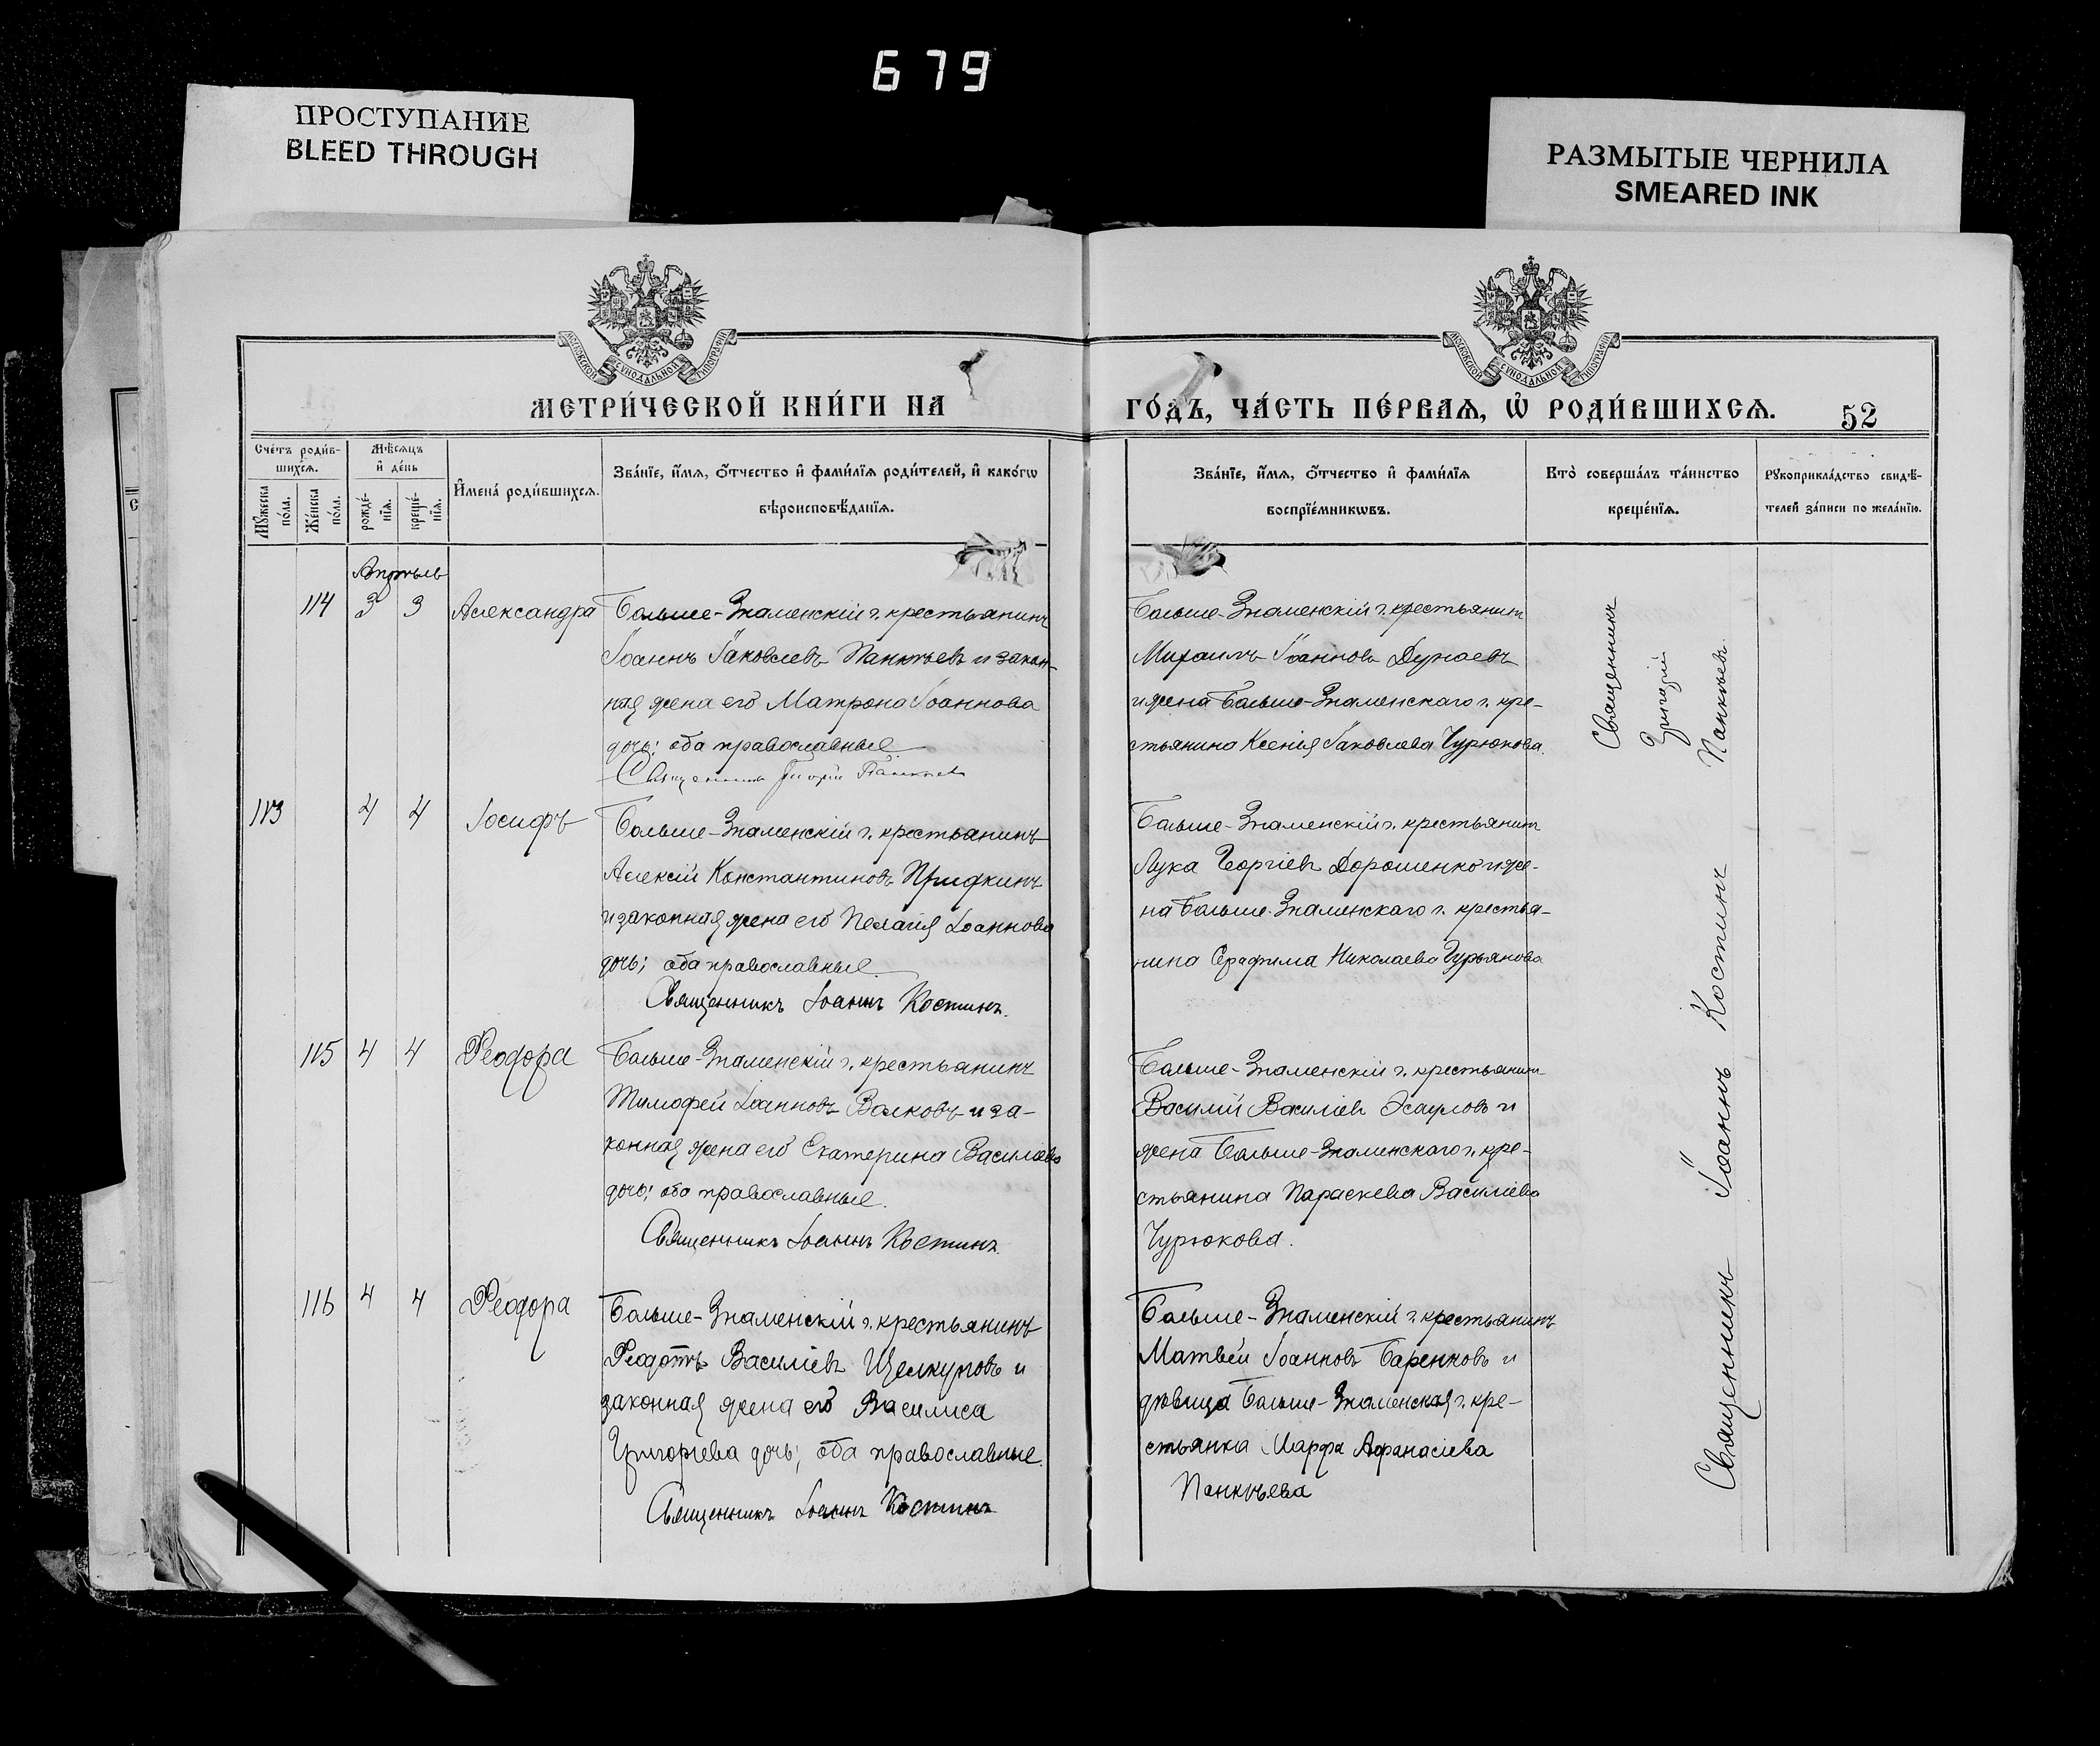 679
ПРОСТУПАНИЕ
BLEED THROUGH
РАЗМЫТЫЕ ЧЕРНИЛА
SMEARED INK
МОСКОВСКОЙ СѴНОДАЛЬНОЙ ТИПОГРАФІИ
МОСКОВСКОЙ СѴНОДАЛЬНОЙ ТИПОГРАФІИ
МЕТРИ́ЧЕСКОЙ КНИ́ГИ НА
ГО́ДЪ, ЧА́СТЬ ПЕ́РВАѦ, Ѡ҆ РОДИ́ВШИХСѦ.
52
Сче́тъ роди́в-
шихсѧ.
Мꙋ́жеска по́ла.
Же́нска по́ла.
Мѣ́сѧцъ
и҆ де́нь
рожде́-
нїѧ.
креще́-
нїѧ.
И҆мена̀ роди́вшихсѧ.
Зва́нїе, и҆́мѧ, ѻ҆́тчество и҆ фами́лїѧ роди́телей, и҆ како́гѡ
вѣроисповѣ́данїѧ.
Зва́нїе, и҆́мѧ, ѻ҆́тчество и҆ фами́лїѧ
воспрїе́мникѡвъ.
Кто̀ соверша́лъ та́инство
креще́нїѧ.
Рꙋкоприкла́дство свидѣ́-
телей за́писи по жела́нїю.
Апрѣль
114 3 3 Александра
Больше-Знаменскій г. крестьянинъ
Іоаннъ Іаковлевъ Панкѣевъ и закон-
ная жена его Матрона Іоаннова
дочь; оба православные
Священникъ Григорій Панкѣевъ
Больше-Знаменскій г. крестьянинъ
Михаилъ Іоанновъ Дунаевъ
и жена Больше-Знаменскаго г. кре-
стьянина Ксенія Іаковлева Чурюкова.
Священникъ
Григорій
Панкѣевъ
113 4 4 Іосифъ
Больше-Знаменскій г. крестьянинъ
Алексій Константиновъ Придкинъ
и законная жена его Пелагія Іоаннова
дочь; оба православные
Священникъ Іоаннъ Костинъ.
Больше-Знаменскій г. крестьянинъ
Лука Георгіевъ Дорошенко и же-
на Больше-Знаменскаго г. крестья-
нина Серафима Николаева Гурьянова
115 4 4 Ѳеодора
Больше-Знаменскій г. крестьянинъ
Тимофей Іоанновъ Волковъ и за-
конная жена его Екатерина Василіева
дочь; оба православные.
Священникъ Іоаннъ Костинъ.
Больше-Знаменскій г. крестьянинъ
Василій Василіевъ Эсауловъ и
жена Больше-Знаменскаго г. кре-
стьянина Параскева Василіева
Чурюкова.
116 4 4 Ѳеодора
Больше-Знаменскій г. крестьянинъ
Ѳеодотъ Василіевъ Щелкуновъ и
законная жена его Василиса
Григоріева дочь; оба православные.
Священникъ Іоаннъ Костинъ
Больше-Знаменскій г. крестьянинъ
Матвей Іоанновъ Баренковъ и
дѣвица Больше-Знаменская г. кре-
стьянка Марфа Афанасіева
Панкѣева
Священникъ Іоаннъ Костинъ